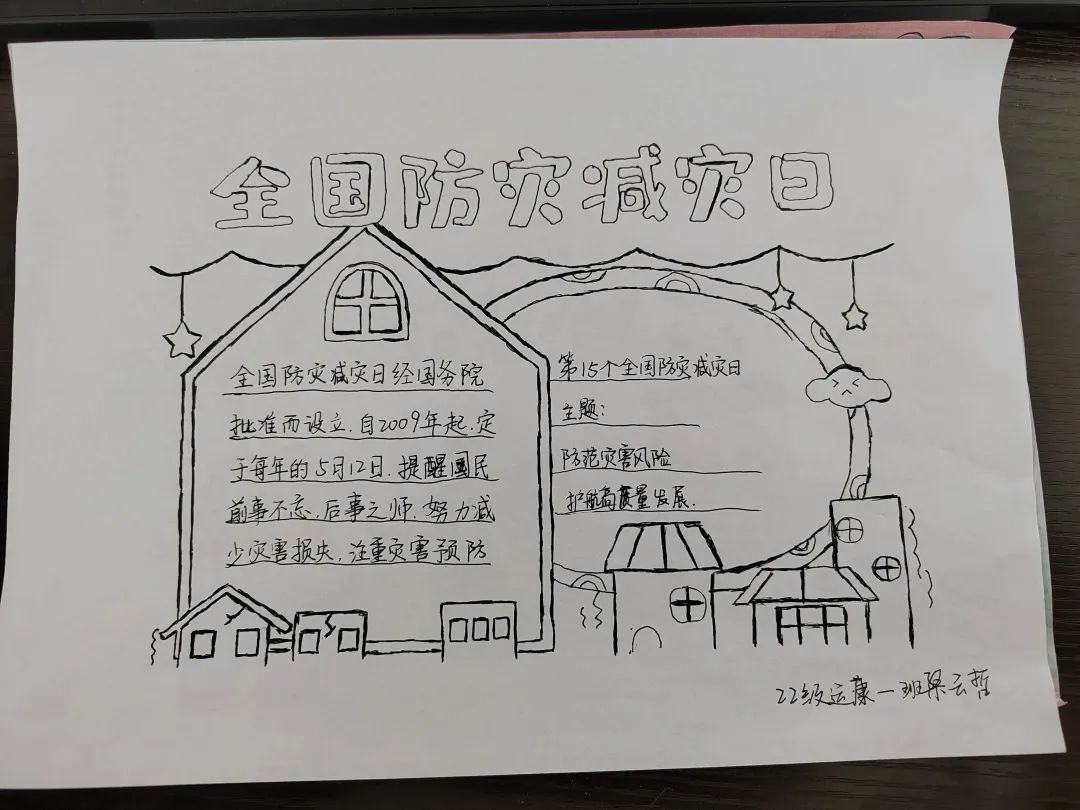 全国防灾减灾日
全国防灾减灾日经国务院
批准而设立.自2009年起.定
于每年的5月12日.提醒国民
前事不忘.后事之师.努力减
少灾害损失.注重灾害预防
第15个全国防灾减灾日
主题:
防范灾害风险
护航高质量发展.
22级运康一班梁云哲